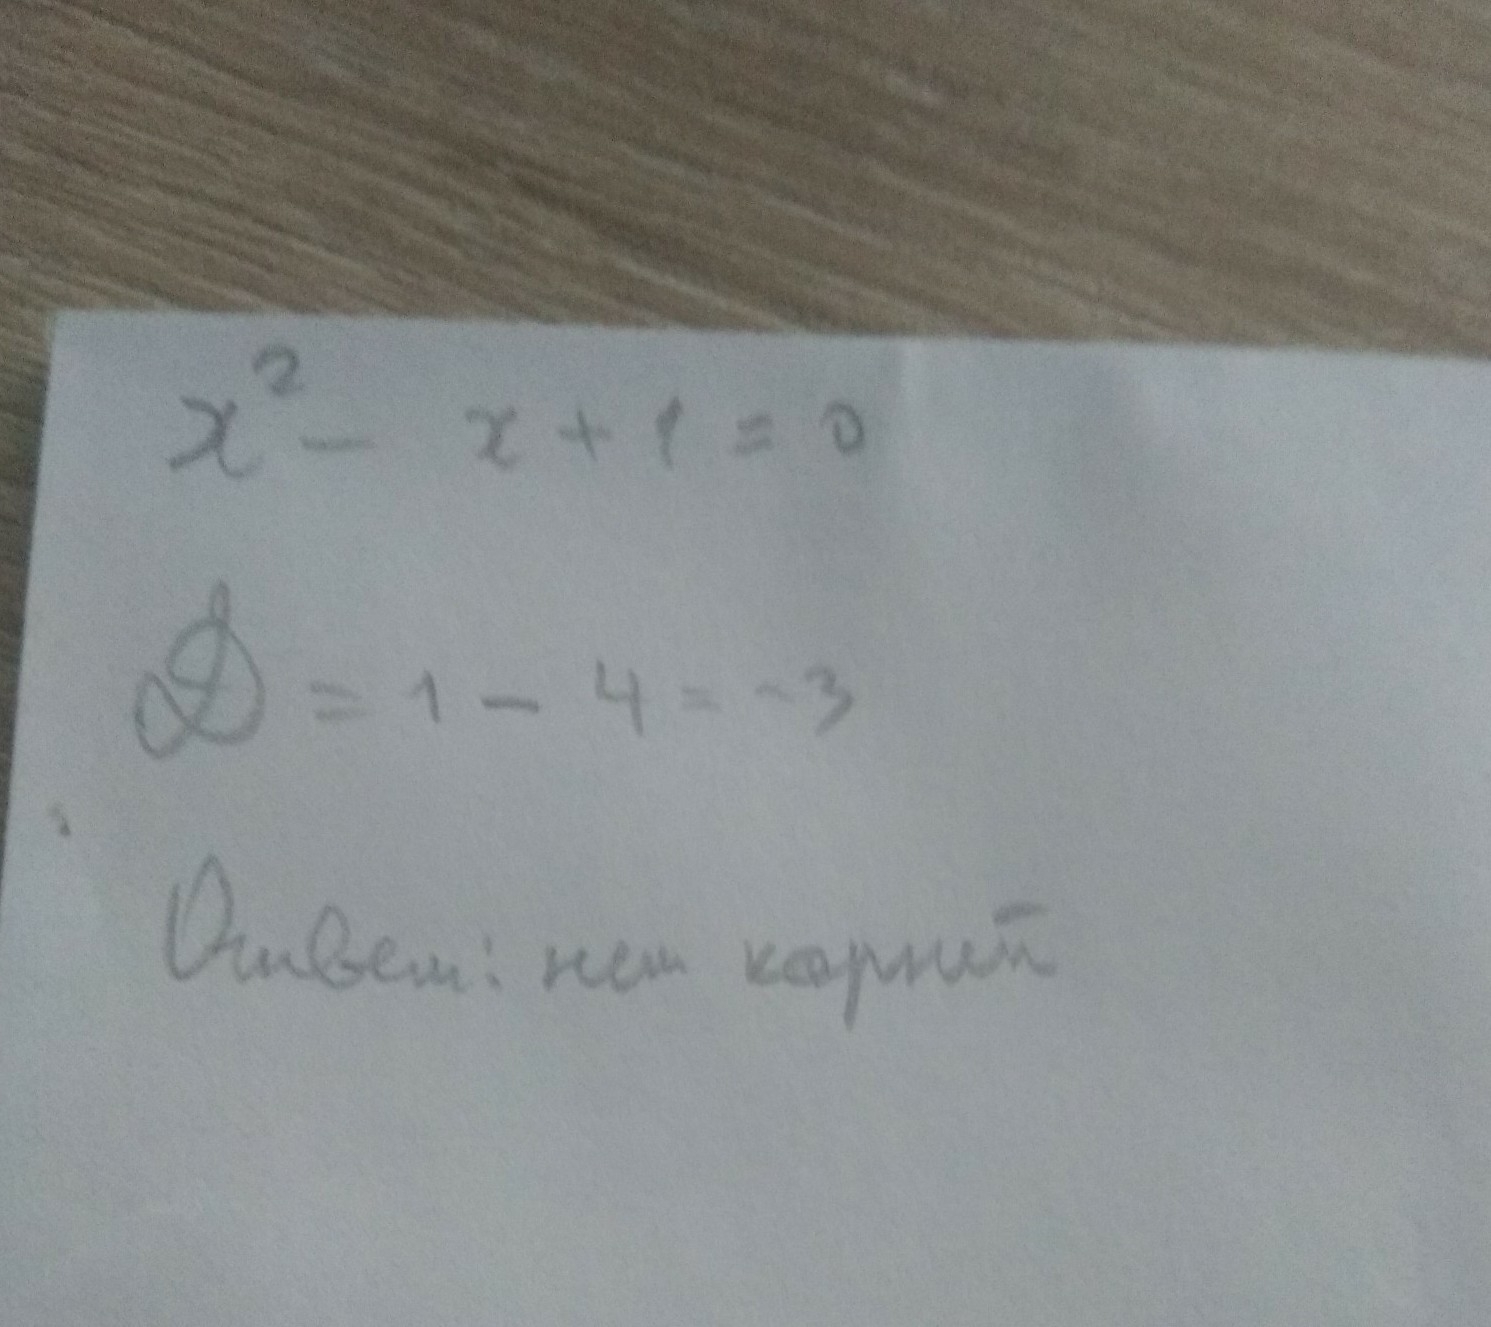 x² - x + 1 = 0
D = 1 - 4 = -3
Ответ: нет корней